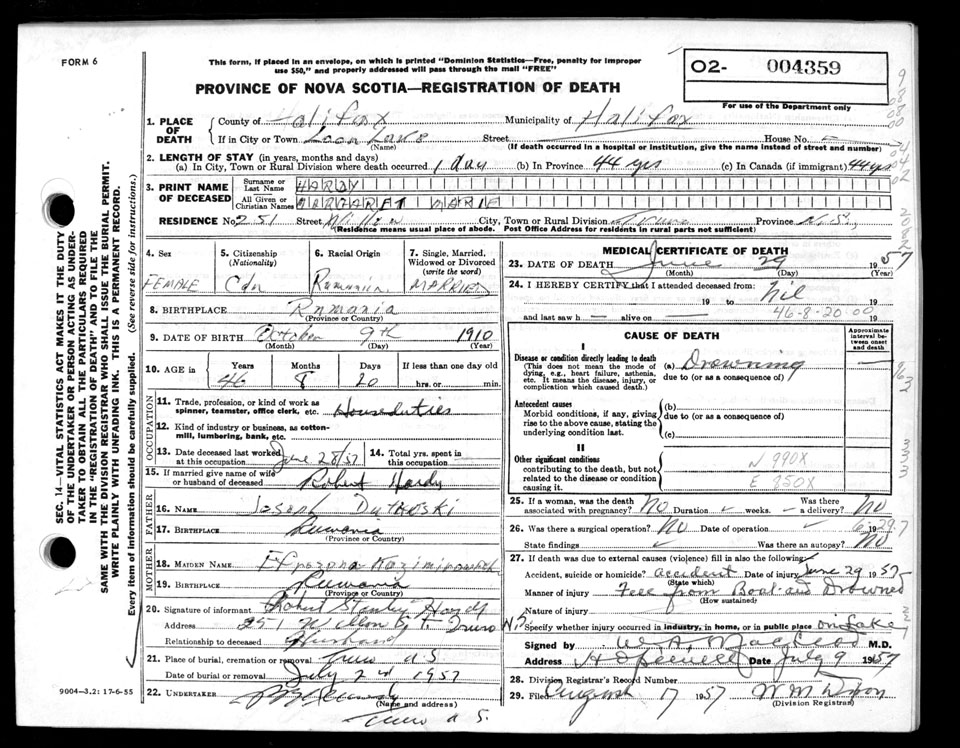 FORM 6
This form, if placed in an envelope, on which is printed "Dominion Statistics—Free, penalty for improper
use $50," and properly addressed will pass through the mail "FREE"
O2- 004359
For use of the Department only
PROVINCE OF NOVA SCOTIA—REGISTRATION OF DEATH
1. PLACE OF DEATH County of Halifax Municipality of Halifax
If in City or Town Loon Lake Street House No.
(Name) (If death occurred in a hospital or institution, give the name instead of street and number)
2. LENGTH OF STAY (in years, months and days)
(a) In City, Town or Rural Division where death occurred 1 day (b) In Province 44 yrs (c) In Canada (if immigrant) 44 yrs
3. PRINT NAME OF DECEASED
Surname or Last Name HARDY
All Given or Christian Names MARGARET MARIE
RESIDENCE No 251 Street City, Town or Rural Division Truro Province N.S.
(Residence means usual place of abode. Post Office Address for residents in rural parts not sufficient)
4. Sex
FEMALE
5. Citizenship
(Nationality)
Cdn
6. Racial Origin
Rumania
7. Single, Married,
Widowed or Divorced
(write the word)
MARRIED
8. BIRTHPLACE Rumania
(Province or Country)
9. DATE OF BIRTH October 9th 1910
(Month) (Day) (Year)
10. AGE in
Years 46
Months 8
Days 20
If less than one day old
hrs. or min.
OCCUPATION
11. Trade, profession, or kind of work as
spinner, teamster, office clerk, etc. Houseduties
12. Kind of industry or business, as cotton-
mill, lumbering, bank, etc.
13. Date deceased last worked
at this occupation June 28/57
14. Total yrs. spent in
this occupation
15. If married give name of wife
or husband of deceased Robert Hardy
FATHER
16. NAME Joseph
17. BIRTHPLACE Rumania
(Province or Country)
MOTHER
18. MAIDEN NAME
19. BIRTHPLACE Rumania
(Province or Country)
20. Signature of informant Robert Stanley Hardy
Address 251 St. Truro N.S.
Relationship to deceased Husband
21. Place of burial, cremation or removal Truro N S
Date of burial or removal July 2nd 1957
22. UNDERTAKER
(Name and address)
Truro N S.
MEDICAL CERTIFICATE OF DEATH
23. DATE OF DEATH June 29 1957
(Month) (Day) (Year)
24. I HEREBY CERTIFY that I attended deceased from: Nil
19 to 19
46-8-20-00
and last saw h alive on 19
CAUSE OF DEATH
Approximate
interval be-
tween onset
and death
I
Disease or condition directly leading to death
(This does not mean the mode of
dying, e.g., heart failure, asthenia,
etc. It means the disease, injury, or
complication which caused death.)
(a) Drowning
due to (or as a consequence of)
Antecedent causes
Morbid conditions, if any, giving
rise to the above cause, stating the
underlying condition last.
(b)
due to (or as a consequence of)
(c)
II
Other significant conditions
contributing to the death, but not
related to the disease or condition
causing it.
N 990X
E 850X
25. If a woman, was the death
associated with pregnancy? No Duration weeks. Was there
a delivery? No
26. Was there a surgical operation? No Date of operation 19
6-29.7
State findings Was there an autopsy? No
27. If death was due to external causes (violence) fill in also the following:
Accident, suicide or homicide? accident Date of injury June 29 1957
(State which)
Manner of injury Fell from Boat and Drowned
(How sustained)
Nature of injury
Specify whether injury occurred in industry, in home, or in public place on Lake
Signed by M.D.
Address Hopewell Date July 9 1957
28. Division Registrar's Record Number
29. Filed August 17 1957 W M Dixon
(Division Registrar)
9004—3.2: 17-6-55
SEC. 14—VITAL STATISTICS ACT MAKES IT THE DUTY
OF THE UNDERTAKER OR PERSON ACTING AS UNDER-
TAKER TO OBTAIN ALL THE PARTICULARS REQUIRED
IN THE "REGISTRATION OF DEATH" AND TO FILE THE
SAME WITH THE DIVISION REGISTRAR WHO SHALL ISSUE THE BURIAL PERMIT.
WRITE PLAINLY WITH UNFADING INK. THIS IS A PERMANENT RECORD.
Every item of information should be carefully supplied. (See reverse side for instructions.)